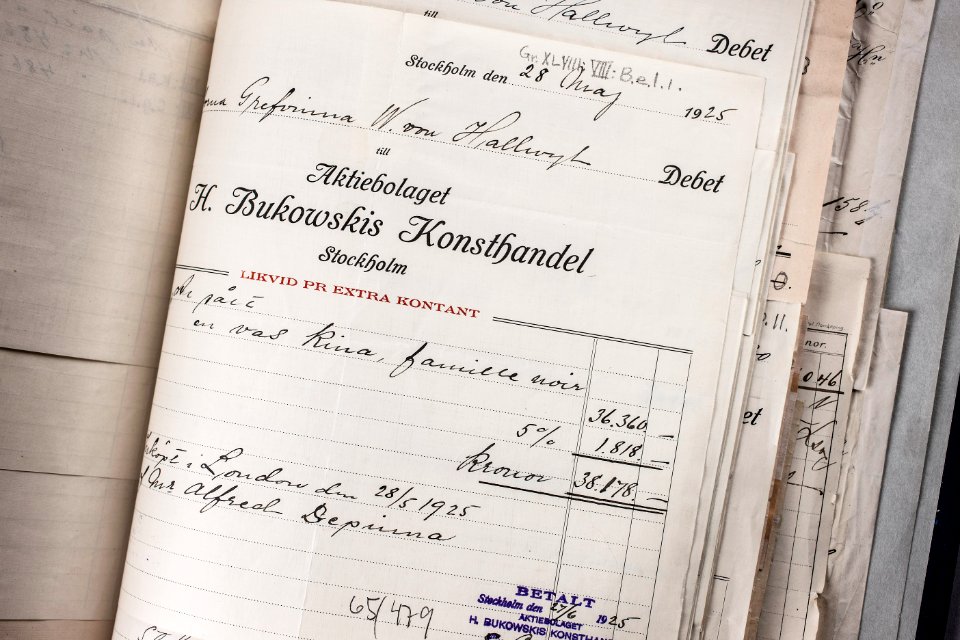 till
von Hallwyl
Debet
Gr. XLVIII: VIII: B.e.1.1.
Stockholm den 28 Maj 1925
Grefvinna W. von Hallwyl
till
Debet
Aktiebolaget
H. Bukowskis Konsthandel
Stockholm
LIKVID PR EXTRA KONTANT
en vas Kina, famille noir
36.360 —
5% 1.818 —
kronor 38.178 —
i London den 28/5 1925
Mr Alfred Depinna
65/479
BETALT
Stockholm den 27/6 1925
AKTIEBOLAGET
H. BUKOWSKIS KONSTHAN
158.
0.
P. 11.
nor.
046
et